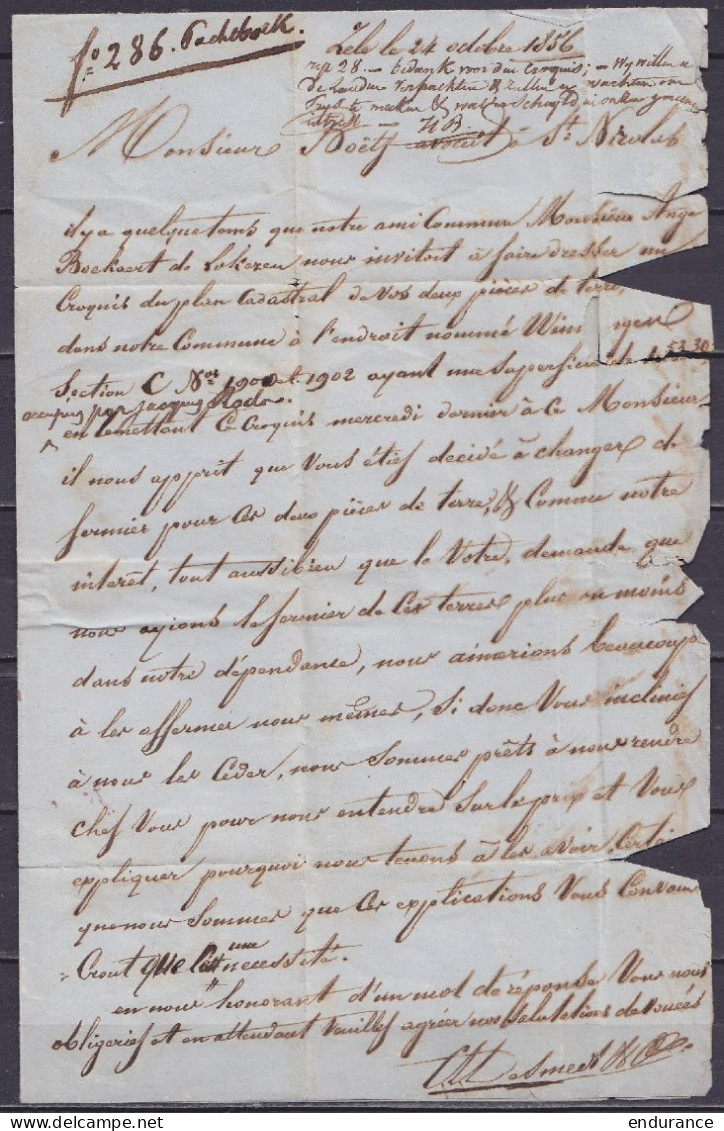 fo 286. Pachtboek.
Zele le 24 octobre 1856
rep 28. — bedank voor den Croquis; — Wy willen
de landen verpachten & zullen
prys te maken &
uitzet — NB
Monsieur Boëts avocat à St Nicolas
il y a quelque tems que notre ami Commun Monsieur Ange
Boekaert de Lokeren nous invitoit à faire dresser un
Croquis du plan Cadastral de vos deux pièces de terre,
dans notre Commune à l'endroit nommé
Section C Nos 1900 et 1902 ayant une superficie de 53.30
occupées par Jacques
en remettant Ce Croquis mercredi dernier à Ce Monsieur
il nous apprit que Vous étiez décidé à changer de
fermier pour Ces deux pièces de terre, & Comme notre
interêt, tout aussi bien que le Votre, demande que
nous ayions le fermier de Ces terres plus ou moins
dans notre dépendance, nous aimerions beaucoup
à les affermer nous mêmes, Si donc Vous incliniez
à nous les Céder, nous Sommes prêts à nous rendre
chez Vous pour nous entendre Sur le prix et Vous
expliquer pourquoi nous tenons à les avoir. Certai
que nous Sommes que Ces explications Vous Convain
Cront que C'est une necessité.
en nous honorant d'un mot de réponse Vous nous
obligeriez et en attendant Veuillez agréer nos Salutations dévouées
Desmedt
endurance